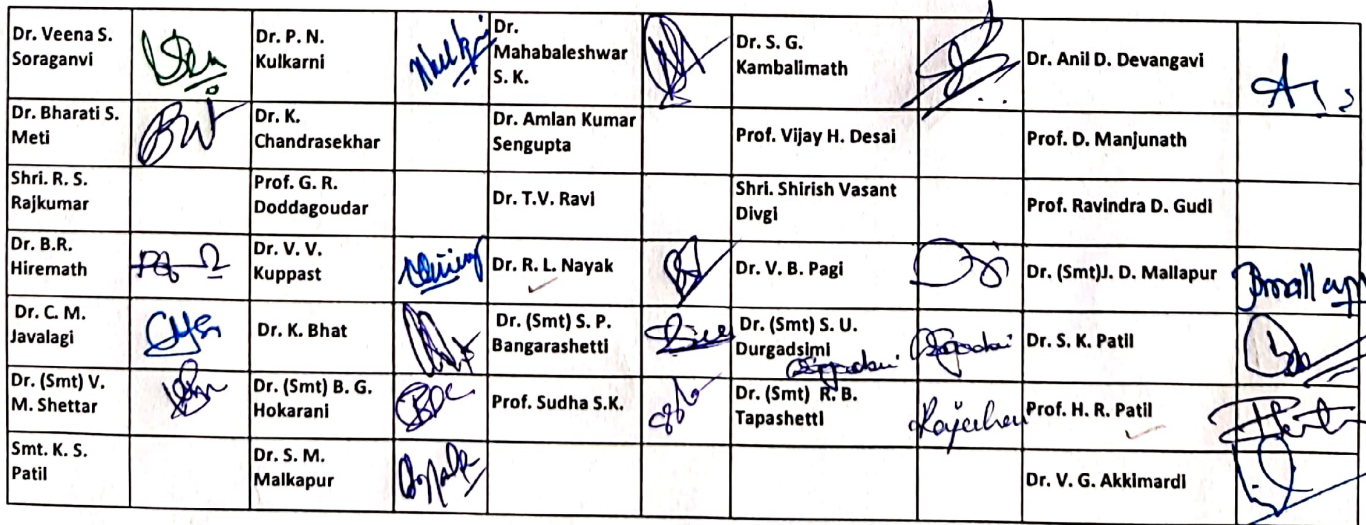 Dr. Veena S.
Soraganvi
Dr. P. N.
Kulkarni
Dr.
Mahabaleshwar
S. K.
Dr. S. G.
Kambalimath
Dr. Anil D. Devangavi
Dr. Bharati S.
Meti
Dr. K.
Chandrasekhar
Dr. Amlan Kumar
Sengupta
Prof. Vijay H. Desai
Prof. D. Manjunath
Shri. R. S.
Rajkumar
Prof. G. R.
Doddagoudar
Dr. T.V. Ravi
Shri. Shirish Vasant
Divgi
Prof. Ravindra D. Gudi
Dr. B.R.
Hiremath
Dr. V. V.
Kuppast
Dr. R. L. Nayak
Dr. V. B. Pagi
Dr. (Smt)J. D. Mallapur
Dr. C. M.
Javalagi
Dr. K. Bhat
Dr. (Smt) S. P.
Bangarashetti
Dr. (Smt) S. U.
Durgadsimi
Dr. S. K. Patil
Dr. (Smt) V.
M. Shettar
Dr. (Smt) B. G.
Hokarani
Prof. Sudha S.K.
Dr. (Smt) R. B.
Tapashetti
Prof. H. R. Patil
Smt. K. S.
Patil
Dr. S. M.
Malkapur
Dr. V. G. Akkimardi